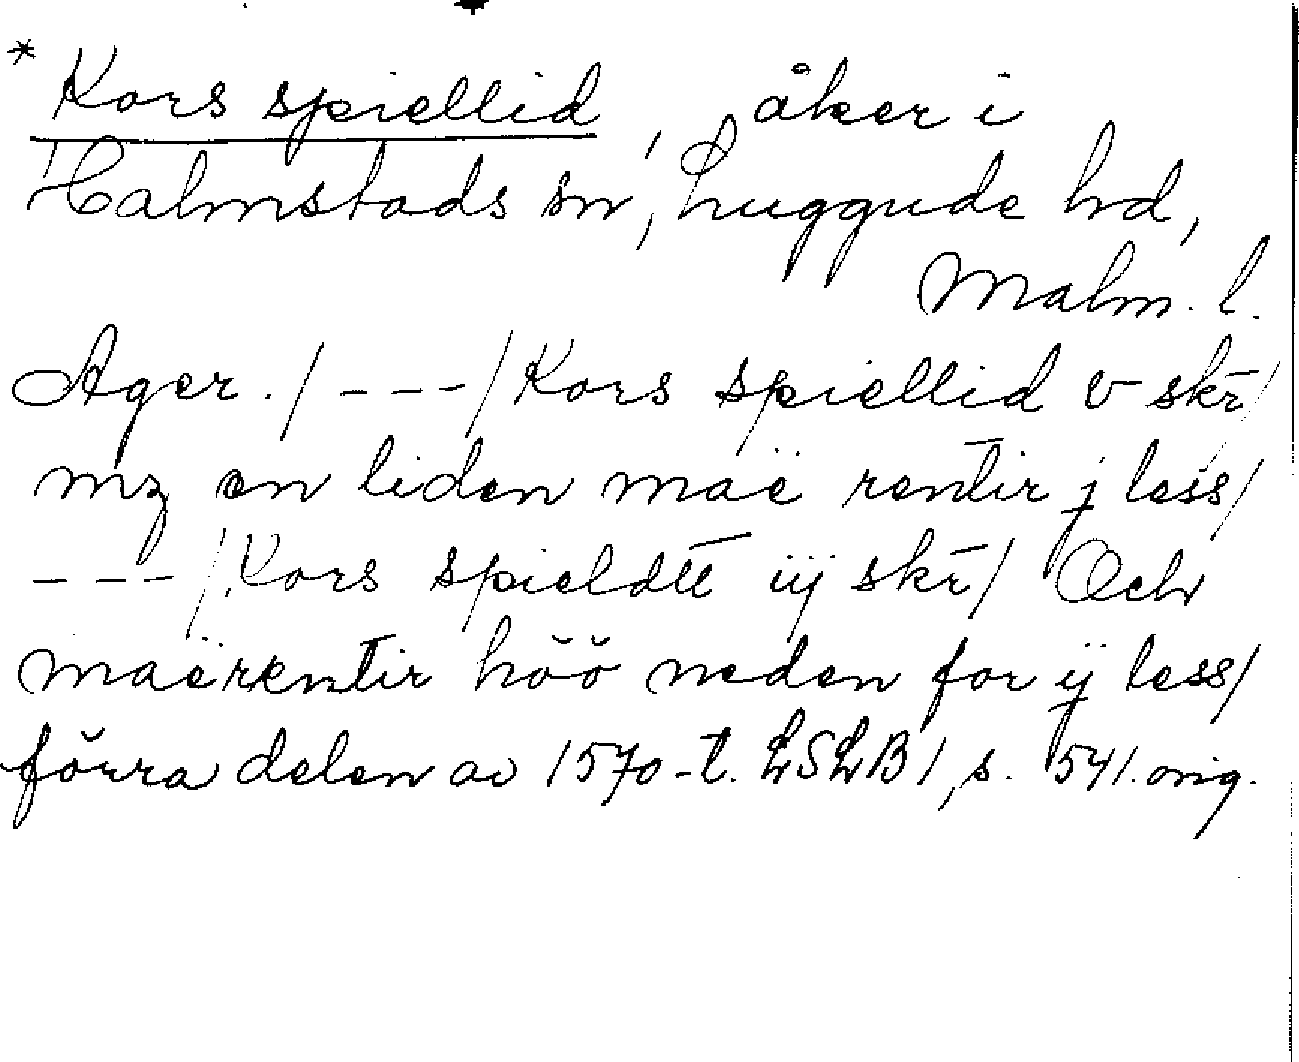 * Kors spiellid, åker i
Halmstads sn, Luggude hd,
Malm. l.
Ager. / - - - / Kors spiellid v skr̄ /
mz en liden maë rentir̄ j less /
- - - / Kors spieldtt̄ iij skr̄ / Och
maërentir̄ höö neden for ij less /
förra delen av 1570-t. LSLB 1, s. 541. orig.